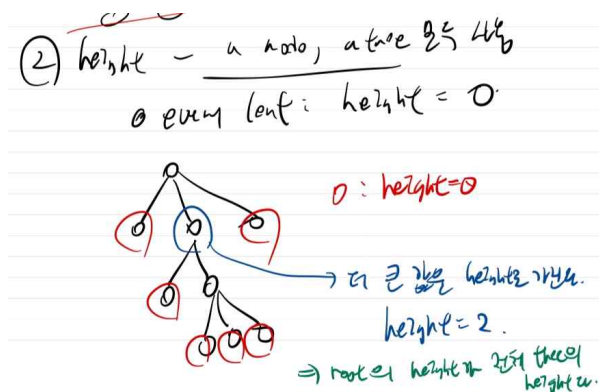 ② height - a node, a tree 모두 사용
• every leaf : height = 0.
0 : height=0
→ 더 큰 값을 height로 가진다.
height = 2.
⇒ root의 height가 전체 tree의
height다.